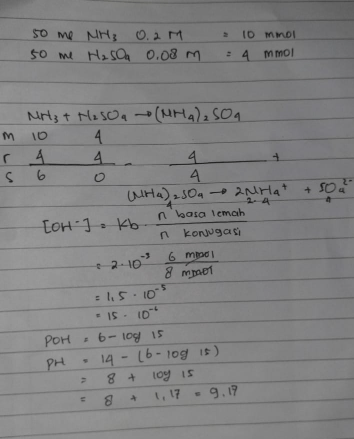 50 ml NH₃ 0.2 M = 10 mmol
50 ml H₂SO₄ 0.08 M = 4 mmol
NH₃ + H₂SO₄ → (NH₄)₂SO₄
m 10 4
r 4 4 - 4 +
s 6 0 4
(NH₄)₂SO₄ → 2NH₄⁺ + SO₄²⁻
4 2·4 4
[OH⁻] = Kb · n basa lemah / n konjugasi
= 2·10⁻⁵ 6 mmol / 8 mmol
= 1,5 · 10⁻⁵
= 15 · 10⁻⁶
POH = 6 - log 15
PH = 14 - (6 - log 15)
= 8 + log 15
= 8 + 1,17 = 9,17